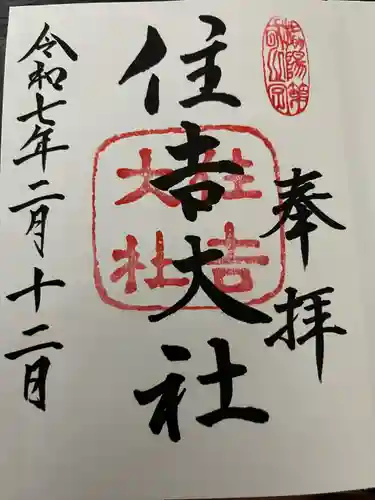 奉拝
住吉大社
令和七年二月十二日
住吉
大社